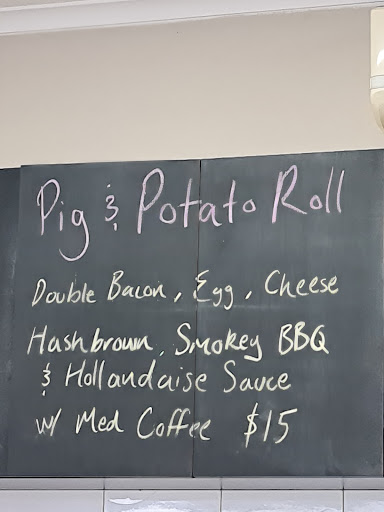 Pig & Potato Roll
Double Bacon, Egg, Cheese
Hashbrown, Smokey BBQ
& Hollandaise Sauce
w/ Med Coffee $15